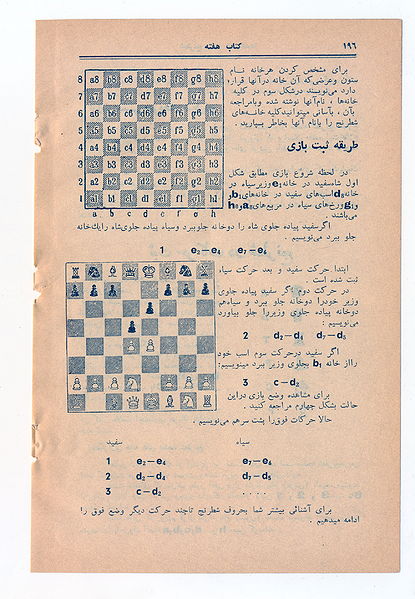 ۱۹۶
کتاب هفته
برای مشخص کردن هرخانه نام
ستون وعرضی‌که آن خانه درآنها قرار
دارد می‌نویسند درشکل سوم در کلیه
خانه‌ها ، نام‌آنها نوشته شده وبامراجعه
بآن ، بآسانی میتوانیدکلیه خانه‌های
شطرنج را بانام آنها بخاطر بسپارید .
8 a8 b8 c8 d8 e8 f8 g8 h8
7 a7 b7 c7 d7 e7 f7 g7 h7
6 a6 b6 c6 d6 e6 f6 g6 h6
5 a5 b5 c5 d5 e5 f5 g5 h5
4 a4 b4 c4 d4 e4 f4 g4 h4
3 a3 b3 c3 d3 e3 f3 g3 h3
2 a2 b2 c2 d2 e2 f2 g2 h2
1 a1 b1 c1 d1 e1 f1 g1 h1
a b c d e f g h
طریقه ثبت بازی
در لحظه شروع بازی مطابق شکل
اول شاه‌سفید در خانه e1 وزیرسیاه در
خانه d8 اسب‌های سفید در خانه‌های b1
و g1 ورخ‌های سیاه در مربع‌های a8 و h8
می‌باشد .
اگرسفید پیاده جلوی شاه را دوخانه جلوببرد وسیاه پیاده جلوی‌شاه رایك‌خانه
جلو ببرد می‌نویسیم .
1 e2—e4 e7—e6
ابتدا حرکت سفید و بعد حرکت سیاه
ثبت شده است
در حرکت دوم اگر سفید پیاده جلوی
وزیر خودرا دوخانه جلو برد و سیاه‌هم
دوخانه پیاده جلوی وزیررا جلو بیاورد
می‌نویسیم :
2 d2—d4 d7—d5
اگر سفید درحرکت سوم اسب خود
رااز خانه b1 بجلوی وزیر ببرد مینویسیم:
3 c—d2
برای مشاهده وضع بازی دراین
حالت بشکل چهارم مراجعه کنید .
حالا حرکات فوق‌را پشت سرهم می‌نویسیم .
سفید سیاه
1 e2—e4 e7—e6
2 d2—d4 d7—d5
3 c—d2 ....
برای آشنائی بیشتر شما بحروف شطرنج تاچند حرکت دیگر وضع فوق را
ادامه میدهیم .